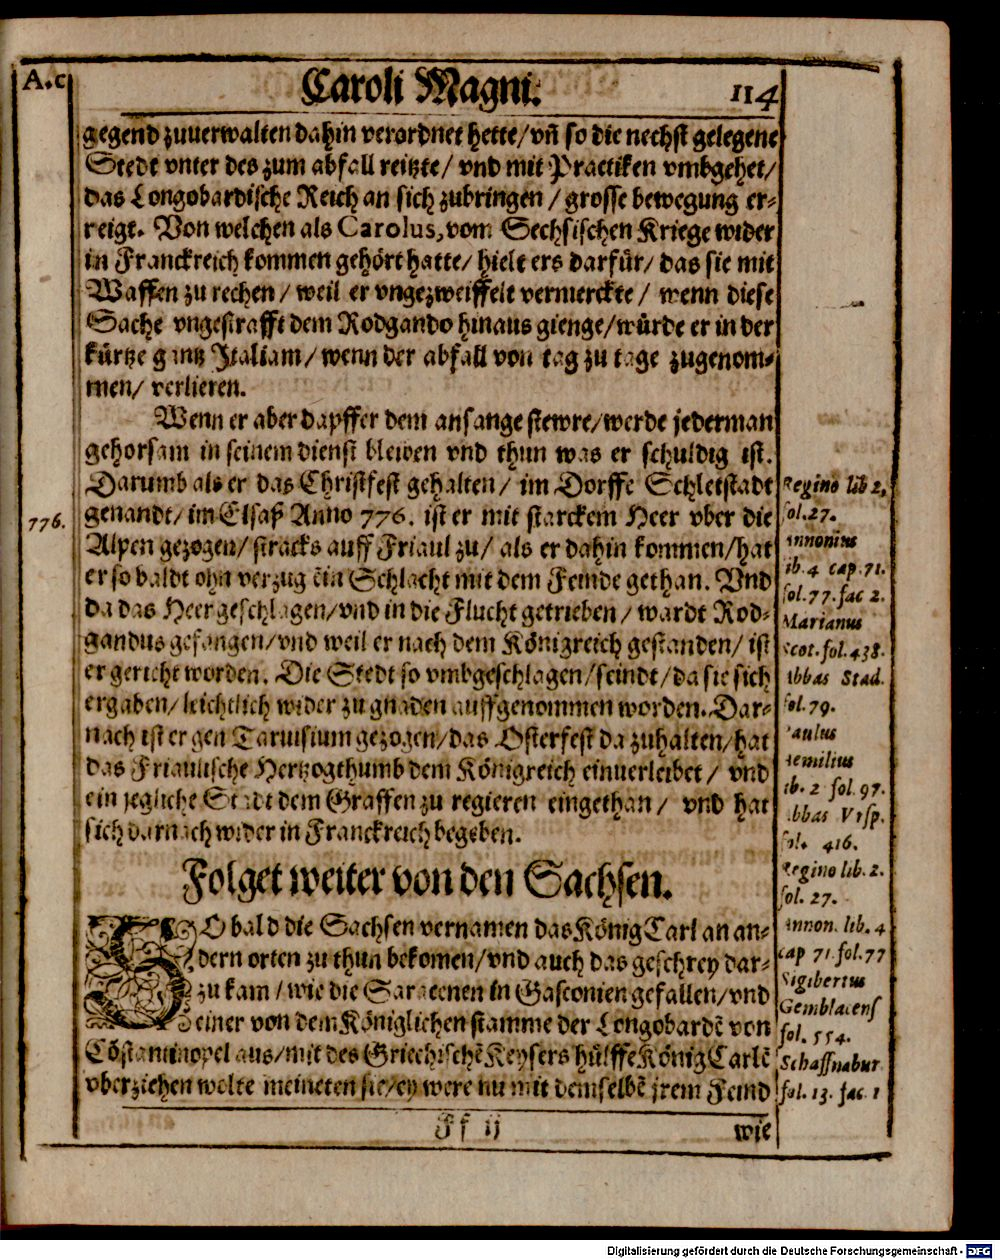 A.C
Caroli Magni.
114
gegend zuuerwalten dahin verordnet hette/vñ so die nechst gelegene
Stedt vnter des zum abfall reitzte/ vnd mit Practiken vmbgehet/
das Longobardische Reich an sich zubringen / grosse bewegung er-
reigt. Von welchen als Carolus, vom Sechsischen Kriege wider
in Franckreich kommen gehört hatte/ hielt ers darfür/ das sie mit
Waffen zu rechen / weil er vngezweiffelt vermerckte / wenn diese
Sache vngestrafft dem Rodgando hinaus gienge/würde er in der
kürtze gantz Italiam/ wenn der abfall von tag zu tage zugenom-
men/ verlieren.
Wenn er aber dapffer dem anfange stewre/werde jederman
gehorsam in seinem dienst bleiben vnd thun was er schuldig ist.
Darumb als er das Christfest gehalten/ im Dorffe Schletstadt
genandt/ im Elsaß Anno 776. ist er mit starckem Heer vber die
Alpen gezogen/ stracks auff Friaul zu/ als er dahin kommen/hat
er so baldt ohn verzug ein Schlacht mit dem Feinde gethan. Vnd
da das Heer geschlagen/vnd in die Flucht getrieben / wardt Rod-
gandus gefangen/vnd weil er nach dem Königreich gestanden/ ist
er gericht worden. Die Stedt so vmbgeschlagen/seindt/da sie sich
ergaben/ leichtlich wider zu gnaden auffgenommen worden. Dar-
nach ist er gen Taruisium gezogen/das Osterfest da zuhalten/hat
das Friaulische Hertzogthumb dem Königreich einuerleibet / vnd
ein jegliche Stadt dem Graffen zu regieren eingethan/ vnd hat
sich darnach wider in Franckreich begeben.
776.
Regino lib 2,
fol. 27.
Annonius
lib. 4 cap. 71.
fol. 77. fac 2.
Marianus
Scot. fol. 438.
Abbas Stad.
fol. 79.
Paulus
Aemilius
lib. 2 fol. 97.
Abbas Vrsp.
fol. 416.
Regino lib. 2.
fol. 27.
Annon. lib. 4
cap 71. fol. 77
Sigibertus
Gemblacens
fol. 554.
Schaffnabur
fol. 13. fac. 1
Folget weiter von den Sachsen.
SO bald die Sachsen vernamen das König Carl an an-
dern orten zu thun bekomen/vnd auch das geschrey dar-
zu kam / wie die Saracenen in Gasconien gefallen/vnd
einer von dem Königlichen stamme der Longobardē von
Cōstantinopel aus/mit des Griechischē Keysers hülffe König Carlē
vberziehen wolte meineten sie/ey were nu mit demselbē jrem Feind
Ff ij
wie
Digitalisierung gefördert durch die Deutsche Forschungsgemeinschaft - DFG